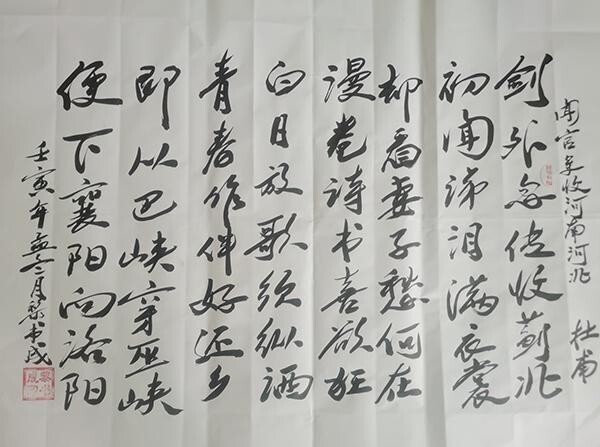 闻官军收河南河北 杜甫
剑外忽传收蓟北
初闻涕泪满衣裳
却看妻子愁何在
漫卷诗书喜欲狂
白日放歌须纵酒
青春作伴好还乡
即从巴峡穿巫峡
便下襄阳向洛阳
壬寅年孟冬月黎书成